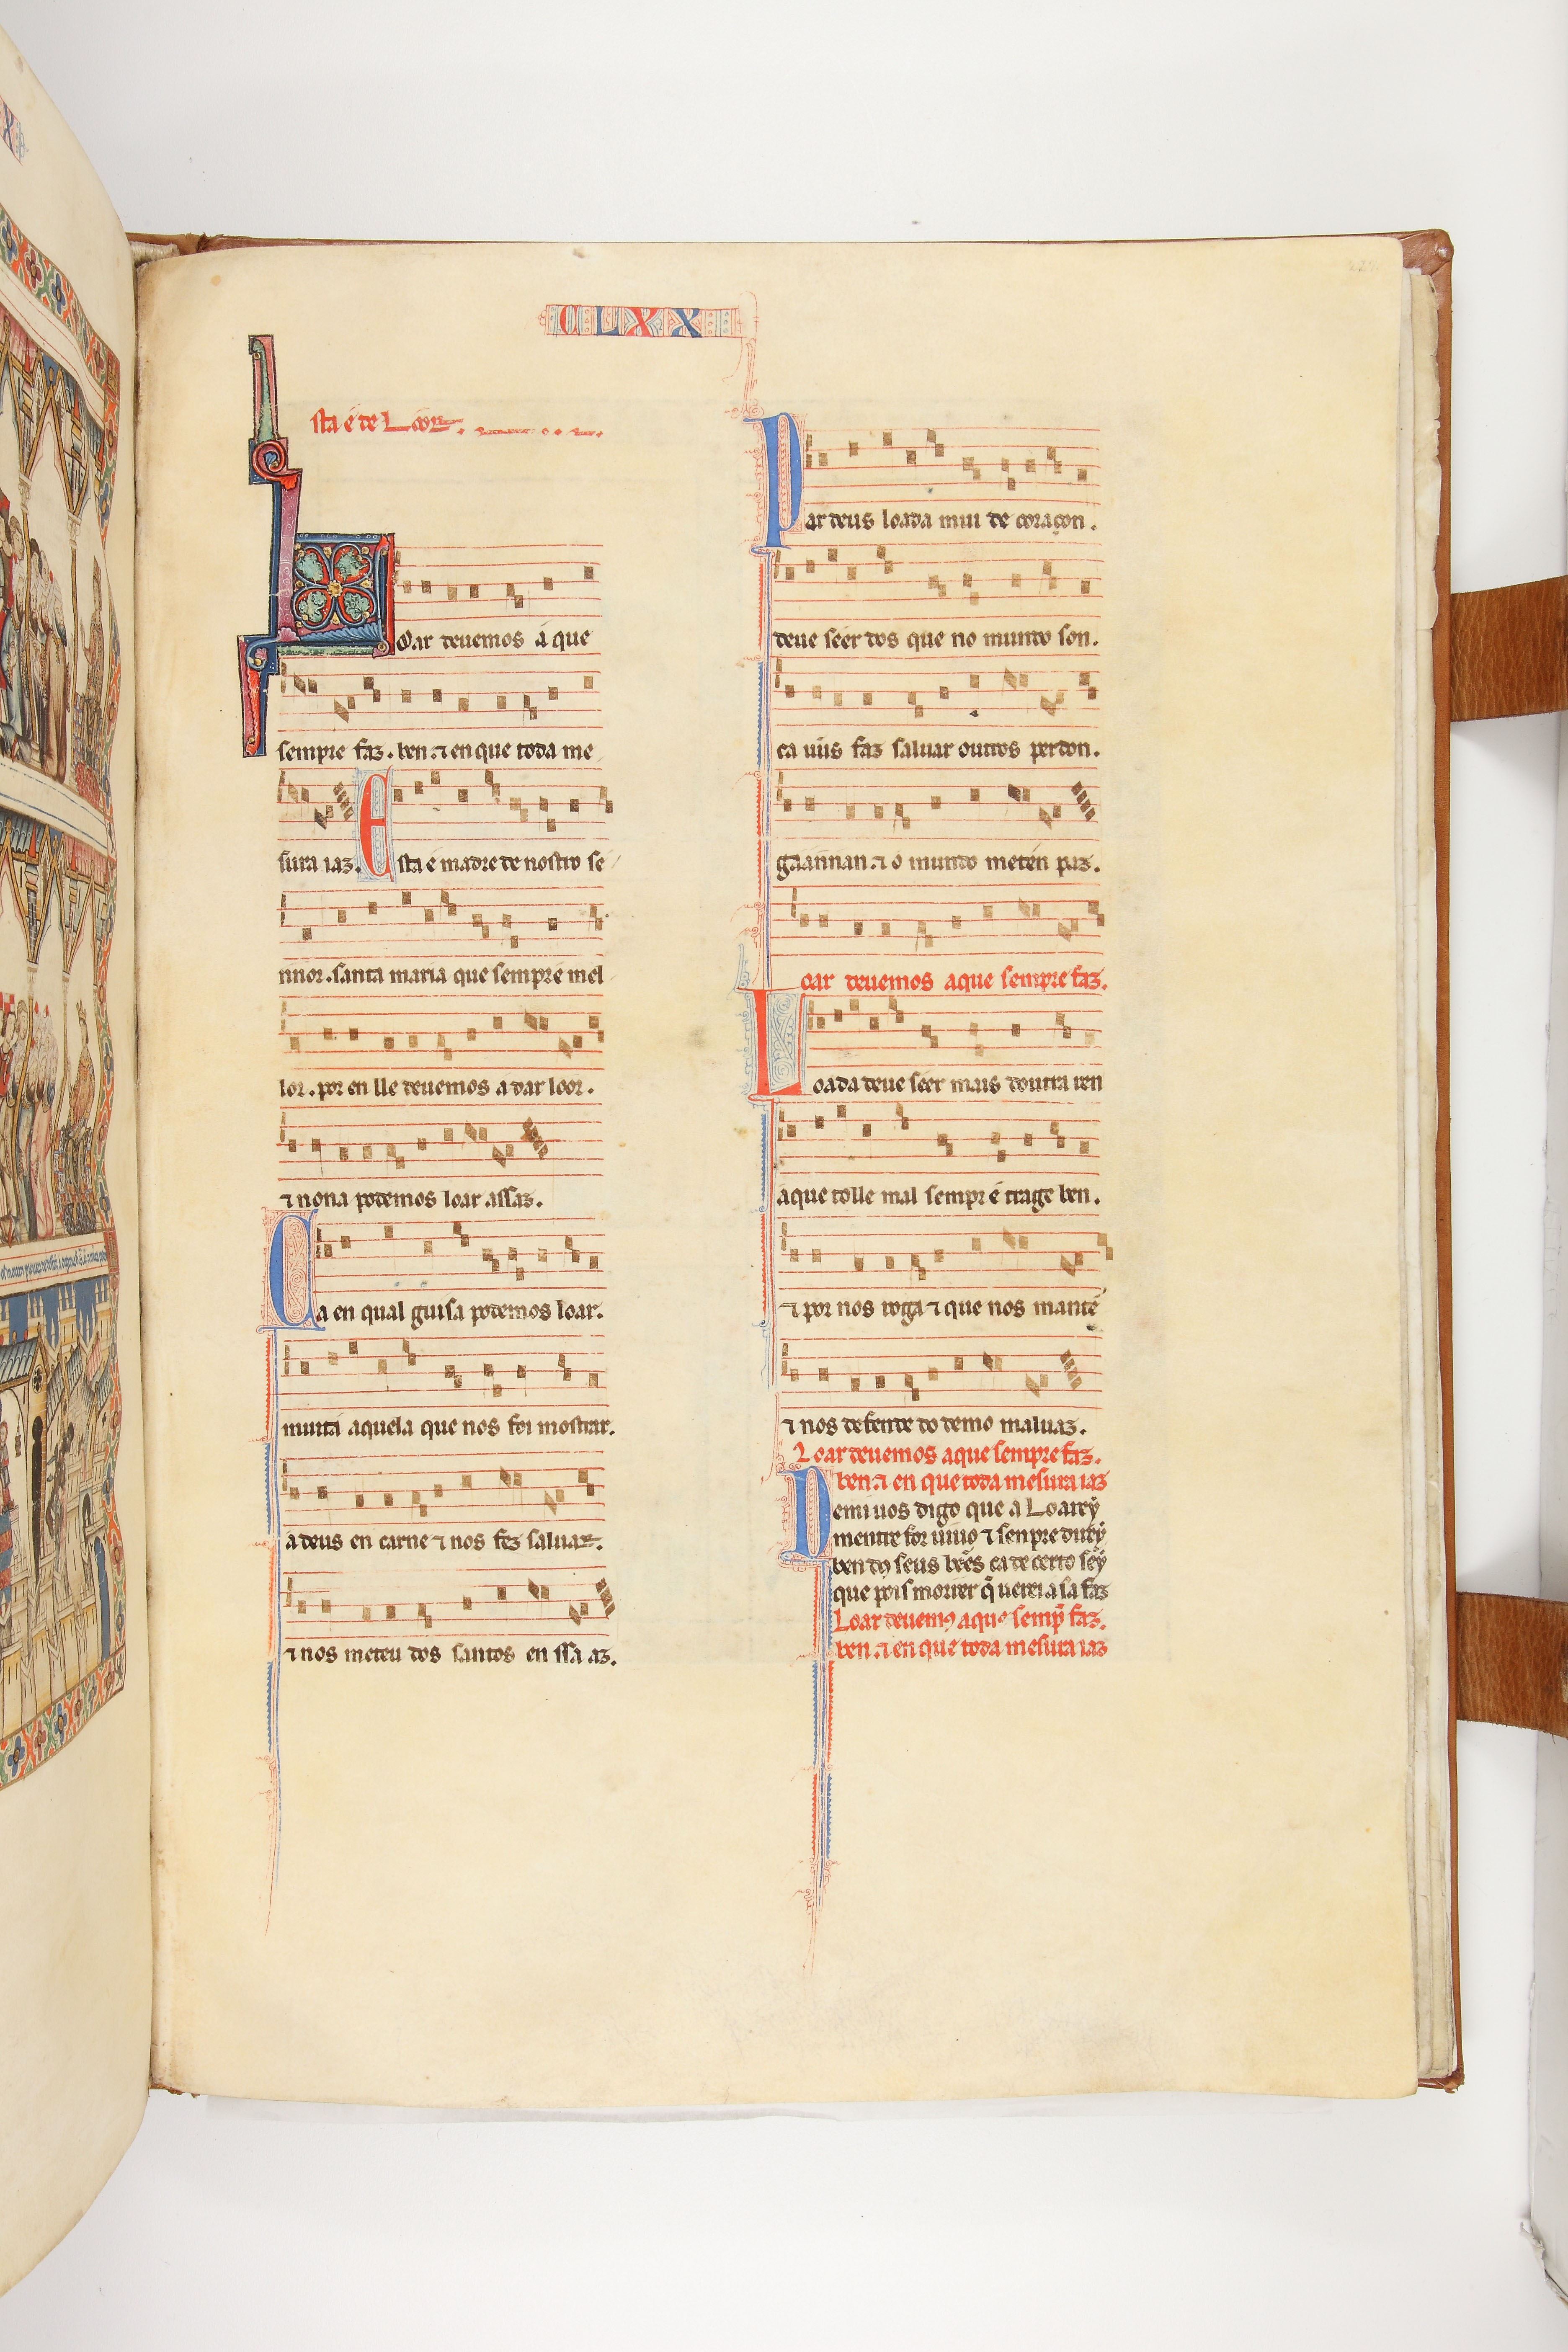 CLXX
sta é de Loor.
Loar deuemos a que
sempre faz. ben. ⁊ en que toda me
sura iaz. Esta é madre de nostro se
nnor. santa maria que sempré mel
lor. por en lle deuemos a dar loor.
⁊ nona podemos loar assaz.
Ca en qual guisa podemos loar.
muita aquela que nos foi mostrar.
a deus en carne ⁊ nos fez saluar.
⁊ nos meteu dos santos en ssa az.
Par deus loada mui de coraçon.
deue seer dos que no mundo son.
ca uũs faz saluar outros perdon.
gaannan. ⁊ o mundo metén paz.
oar deuemos aque sempre faz.
Loada deue seer mais doutra ren
aque tolle mal sempr é trage ben.
⁊ por nos roga ⁊ que nos mantẽ
⁊ nos defende do demo maluaz.
Loar deuemos aque sempre faz.
ben. ⁊ en que toda mesura iaz
De mi uos digo que a Loarey
mentre for uiuo ⁊ senpre durey
ben dos seus bẽes ca de certo sey
que pois morrer q̃ uerei a sa faz
Loar deuemꝯ aque semp̃ faz.
ben. ⁊ en que toda mesura iaz